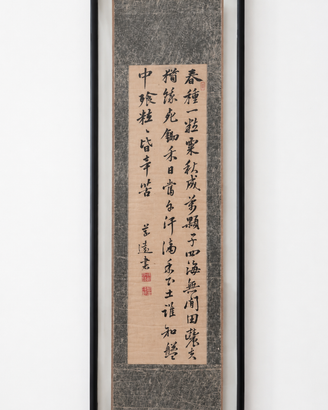 春種一粒粟秋成萬顆子四海無閒田農夫
猶餓死鋤禾日當午汗滴禾下土誰知盤
中飧粒〻皆辛苦
遠書